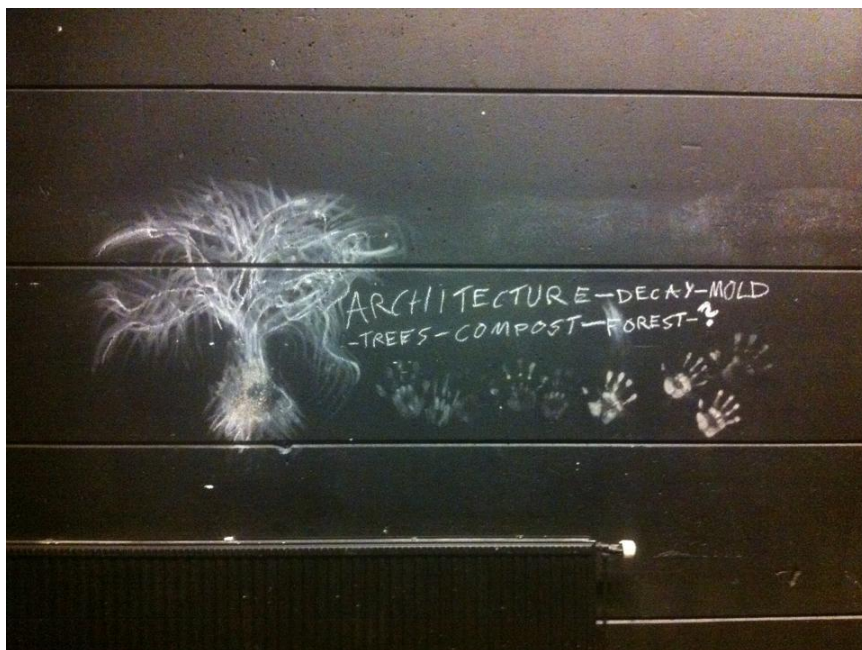 ARCHITECTURE-DECAY-MOLD
-TREES-COMPOST-FOREST-?